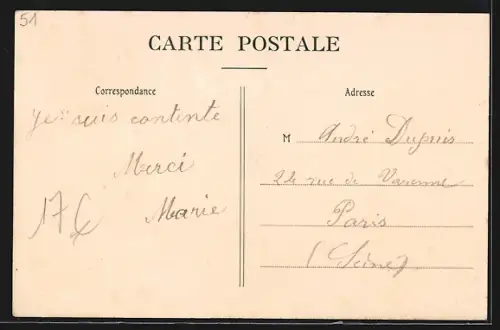 51
CARTE POSTALE
Correspondance
Je suis contente
Merci
Marie
17€
Adresse
M André Dupuis
24 rue de Varenne
Paris
(Seine)